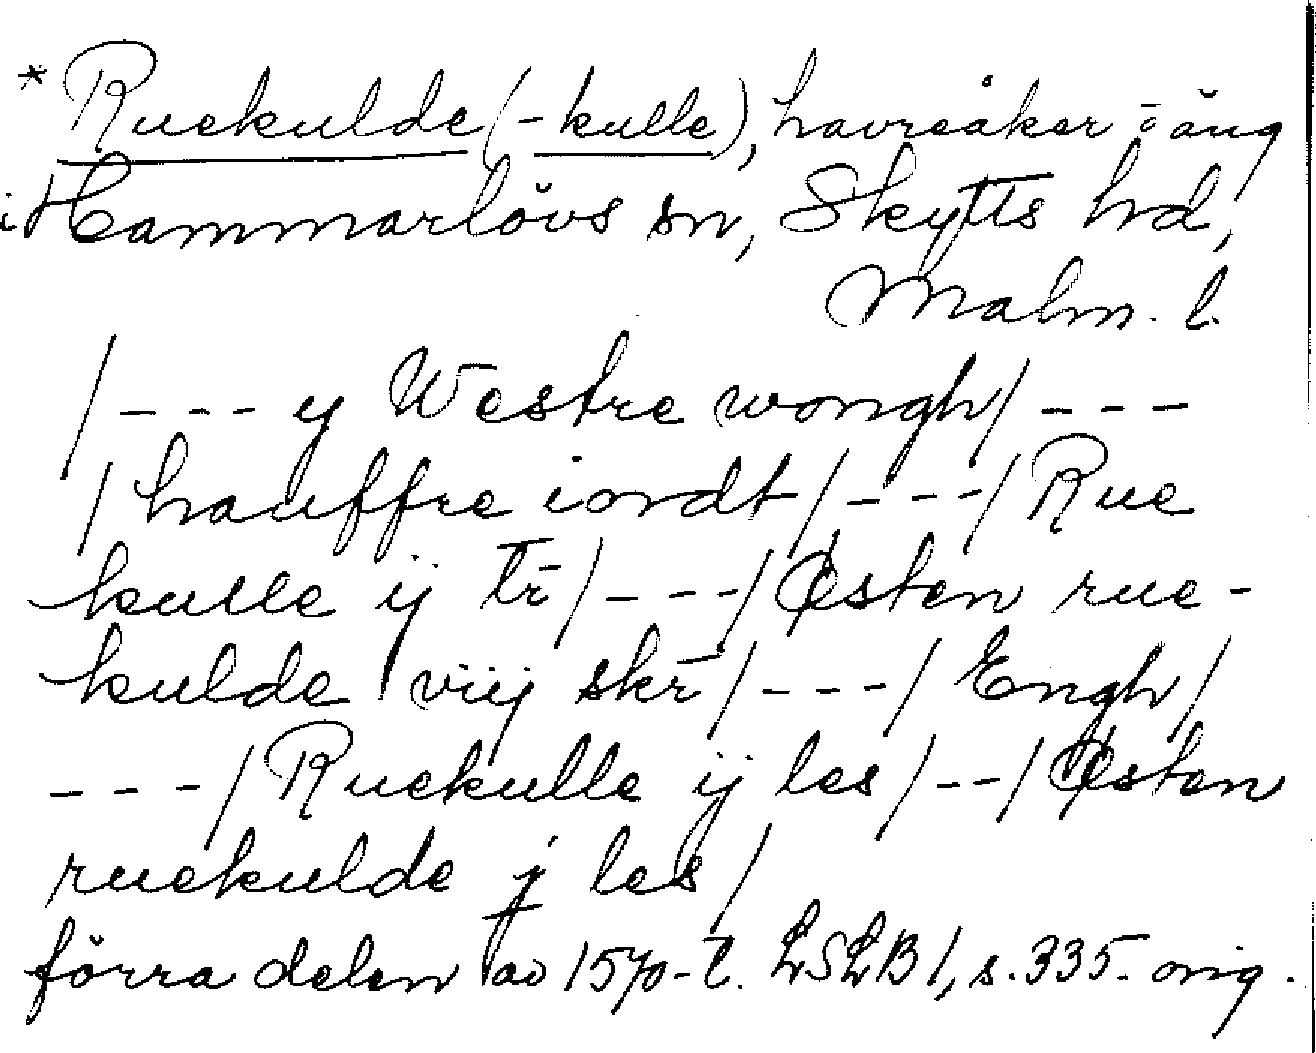 * Ruekulde (-kulle), havreåker o äng
i Hammarlövs sn, Skytts hd,
Malm. l.
/--- y Westre wongh/ ---
/ hauffre iordt/ ---/ Rue
kulle ij tr̄/ ---/ Østen rue-
kulde viij skr̄/ ---/ Engh/
---/ Ruekulle ij les/ --/ Østen
ruekulde j les/
förra delen av 1570-t. LSLB 1, s. 335. orig.